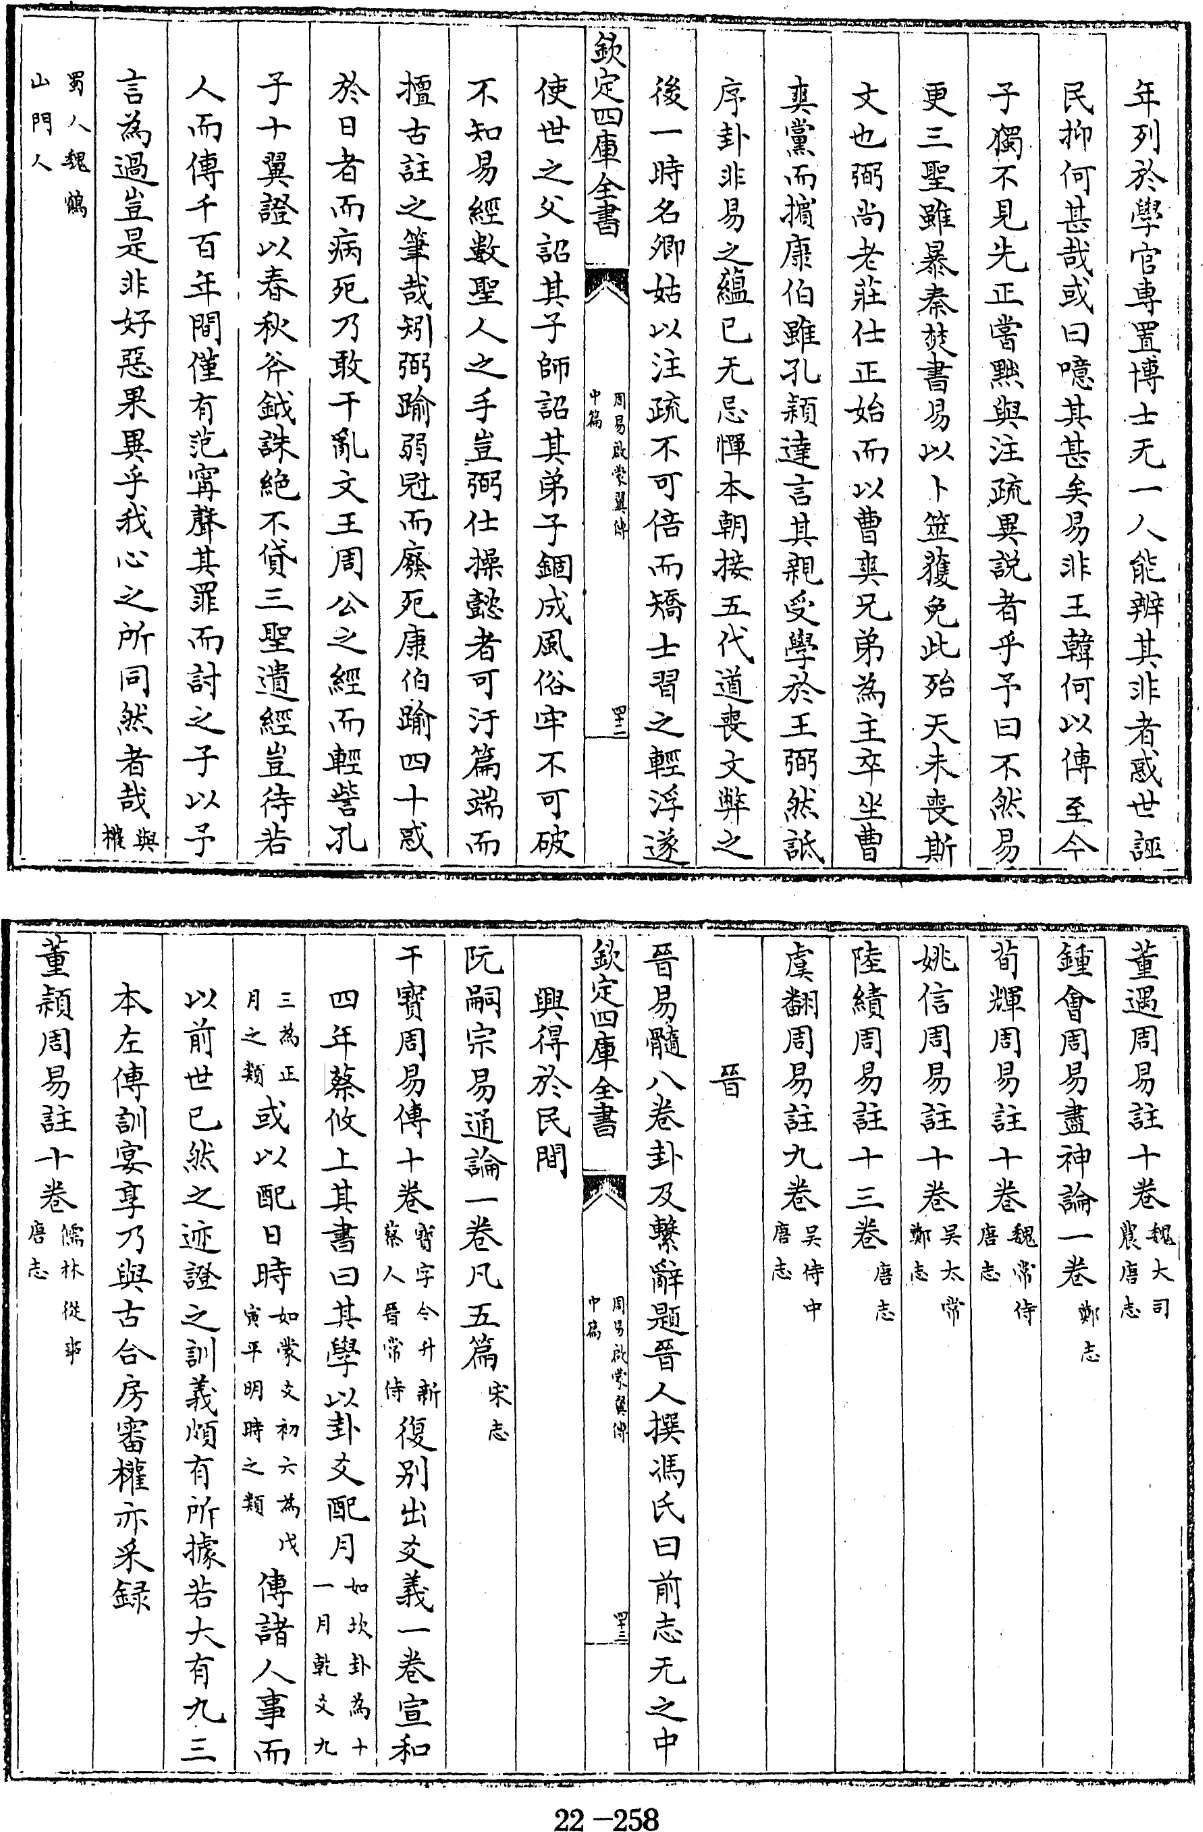 年列於學官専置博士无一人能辨其非者惑世誣
民抑何甚哉或曰噫其甚矣易非王韓何以傳至今
子獨不見先正嘗黙與注疏異説者乎予曰不然易
更三聖雖暴秦焚書易以卜筮獲免此殆天未喪斯
文也弼尚老莊仕正始而以曹爽兄弟為主卒坐曹
爽黨而擯康伯雖孔穎達言其親受學於王弼然詆
序卦非易之藴已无忌憚本朝接五代道喪文弊之
後一時名卿姑以注疏不可倍而矯士習之輕浮遂
欽定四庫全書
周易啟蒙翼傳
中篇
四十二
使世之父詔其子師詔其弟子錮成風俗牢不可破
不知易經數聖人之手豈弼仕操懿者可汙篇端而
擅古註之筆哉矧弼踰弱冠而廢死康伯踰四十惑
於日者而病死乃敢干亂文王周公之經而輕訾孔
子十翼證以春秋斧鉞誅絶不貸三聖遺經豈待若
人而傳千百年間僅有范寗聲其罪而討之子以予
言為過豈是非好惡果異乎我心之所同然者哉與
權
蜀人魏鶴
山門人
董遇周易註十卷魏大司
農唐志
鍾會周易盡神論一卷鄭志
荀輝周易註十卷魏常侍
唐志
姚信周易註十卷吴太常
鄭志
陸績周易註十三卷唐志
虞翻周易註九卷吴侍中
唐志
晉
晉易髓八卷卦及繫辭題晉人撰馮氏曰前志无之中
欽定四庫全書
周易啟蒙翼傳
中篇
四十三
興得於民間
阮嗣宗易通論一卷凡五篇宋志
干寳周易傳十卷寳字令升新
蔡人晉常侍復别出爻義一卷宣和
四年蔡攸上其書曰其學以卦爻配月如坎卦為十
一月乾爻九
三為正
月之類或以配日時如蒙爻初六為戊
寅平明時之類傳諸人事而
以前世已然之迹證之訓義頗有所據若大有九三
本左傳訓宴享乃與古合房審權亦采録
董穎周易註十卷儒林從事
唐志
22-258